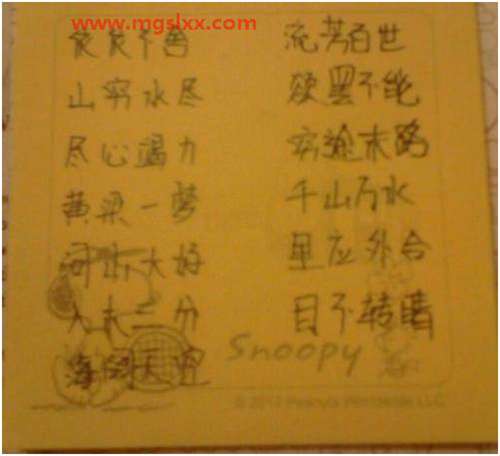 www.mgslxx.com
不善 流芳百世
山穷水尽 欲罢不能
尽心竭力 穷途末路
黄粱一梦 千山万水
河山大好 里应外合
入木三分 目不转睛
海阔天空 Snoopy
© 2012 Peanuts Worldwide LLC